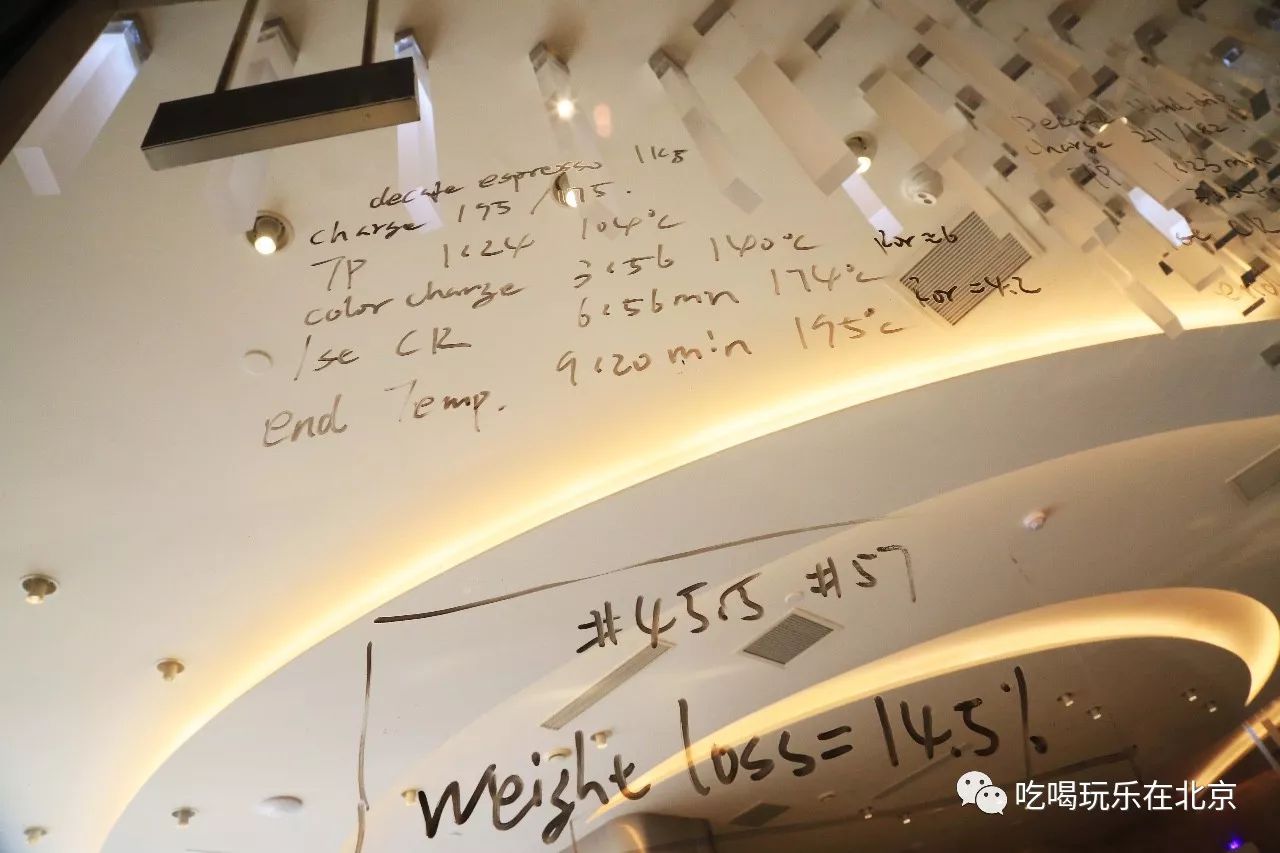 decafe espresso 1kg
charge 195 / 175.
TP 1:24 104°C
color charge 3:56 140°C Ror=6
1se CR 6:56min 174°C Ror=4.2
end Temp. 9:20min 195°C
Charge 211/182.
TP 1:23min
#45.5 #57
Weight loss=14.5%
吃喝玩乐在北京